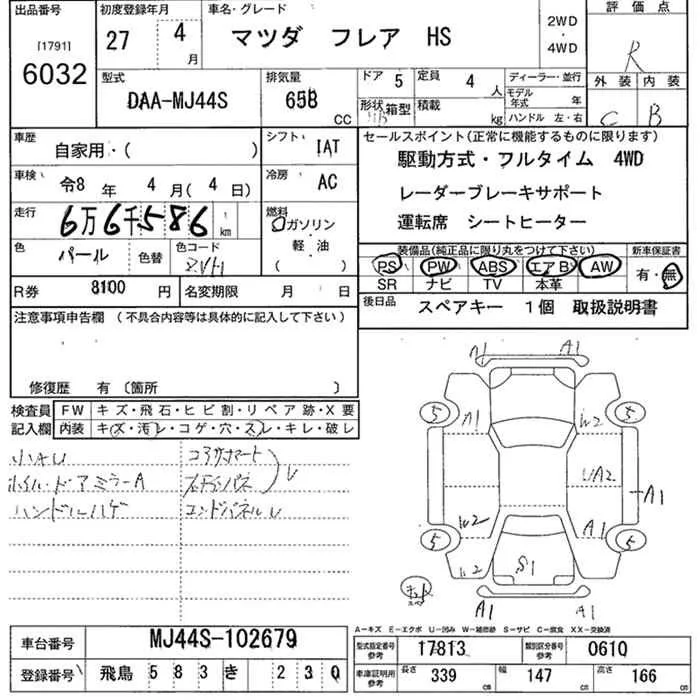 出品番号 初度登録年月 車名・グレード 2WD・4WD 評価点
[1791] 6032 27 4月 マツダ フレア HS R
型式 排気量 ドア 5 定員 4人 ディーラー・並行 外装 内装
DAA-MJ44S 658 CC 形状 箱型 積載 kg モデル年式 年 C B
ハンドル 左・右
車歴 自家用・( ) シフト IAT セールスポイント(正常に機能するものに限ります)
駆動方式・フルタイム 4WD
車検 令8年 4月(4日) 冷房 AC レーダーブレーキサポート
走行 6万6千586km 燃料 ガソリン 軽・油 ( ) 運転席 シートヒーター
色 パール 色替 色コード ZVH 装備品(純正品に限り丸をつけて下さい) 新車保証書
PS PW ABS エアB AW 有・無
SR ナビ TV 本革
R券 8100円 名変期限 月 日 後日品 スペアキー 1個 取扱説明書
注意事項申告欄(不具合内容等は具体的に記入して下さい)
修復歴 有(箇所 )
検査員記入欄 FW キズ・飛石・ヒビ割・リペア跡・X要
内装 キズ・汚レ・コゲ・穴・スレ・キレ・破レ
小AU コアサポート
ホイル・ドアミラーA U
ハンドルハゲ エンドパネルU
A1 A1
5 A1 W2 5
UA2 A1
W2 A1
5 W2 S1 5
A1 A1
A-キズ E-エクボ U-凹み W-補修跡 S-サビ C-腐食 XX-交換済
車台番号 MJ44S-102679 型式指定番号 参考 17813 類別区分番号 参考 0610
登録番号 飛鳥 583 き 230 車庫証明用 参考 長さ 339cm 幅 147cm 高さ 166cm